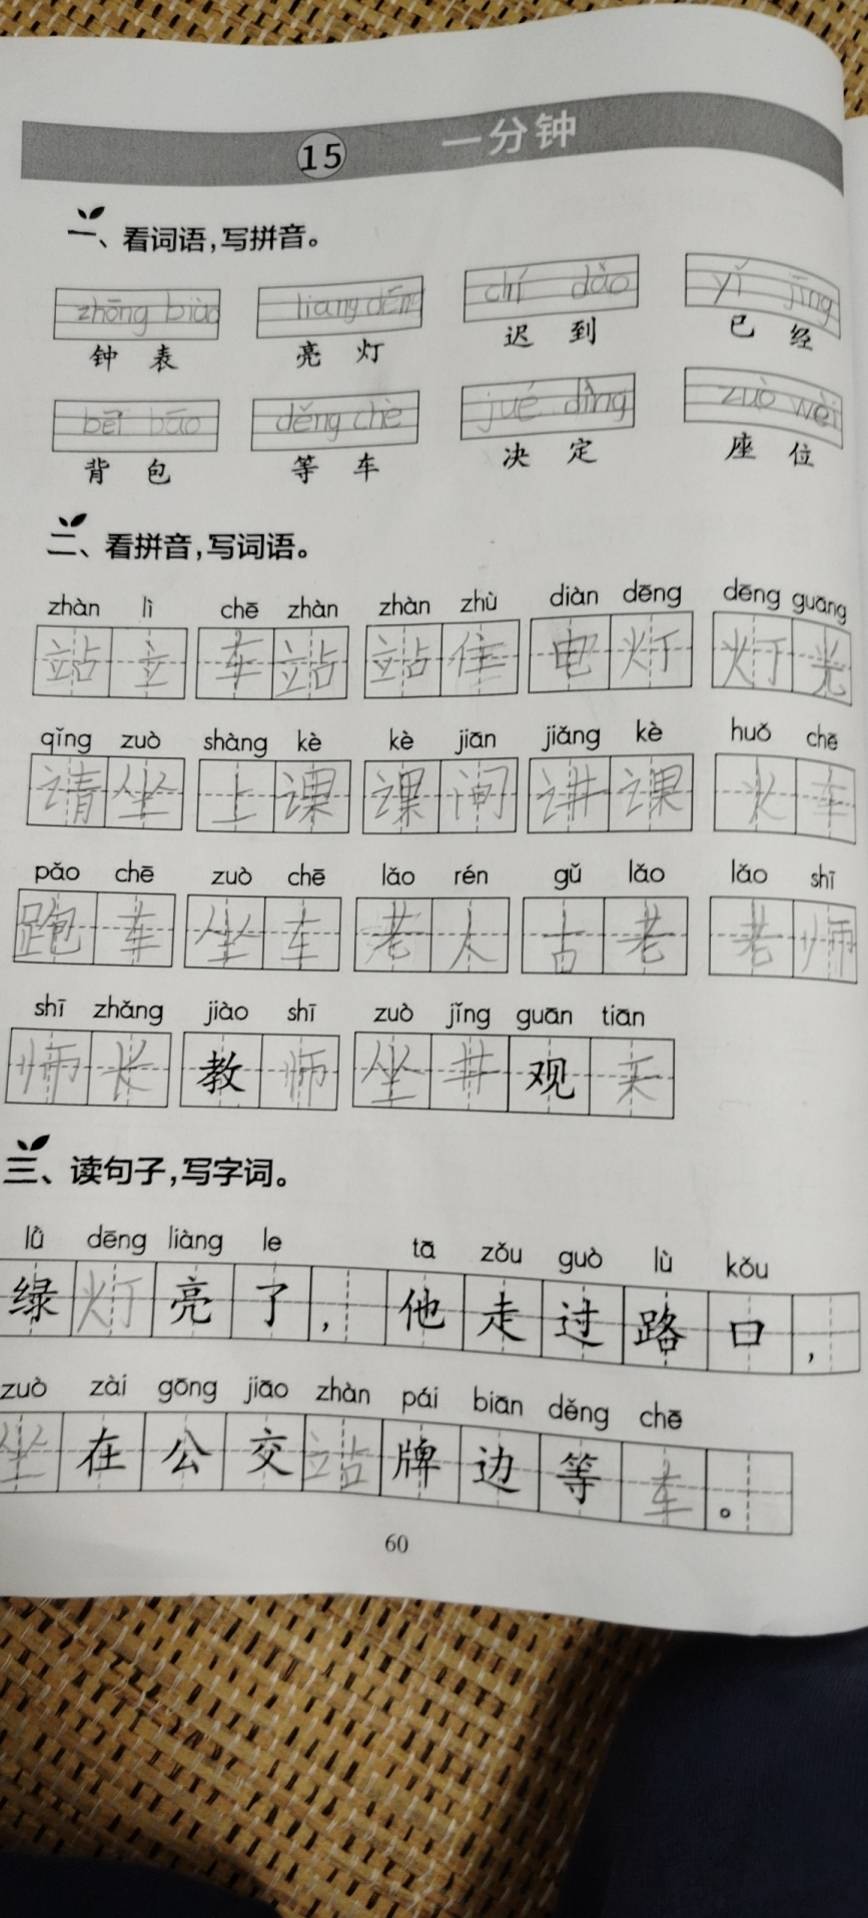 15 一分钟
一、看词语，写拼音。
zhōng biǎo liang dēng chí dào yǐ jīng
钟 表 亮 灯 迟 到 已 经
bēi bāo děng chē jué dìng zuò wèi
背 包 等 车 决 定 座 位
二、看拼音，写词语。
zhàn lì chē zhàn zhàn zhù diàn dēng dēng guāng
站 立 车 站 站 住 电 灯 灯 光
qǐng zuò shàng kè kè jiān jiǎng kè huǒ chē
请 坐 上 课 课 间 讲 课 火 车
pǎo chē zuò chē lǎo rén gǔ lǎo lǎo shī
跑 车 坐 车 老 人 古 老 老 师
shī zhǎng jiào shī zuò jǐng guān tiān
师 长 教 师 坐 井 观 天
三、读句子，写字词。
lǜ dēng liàng le tā zǒu guò lù kǒu
绿 灯 亮 了 ， 他 走 过 路 口 ，
zuò zài gōng jiāo zhàn pái biān děng chē
坐 在 公 交 站 牌 边 等 车 。
60